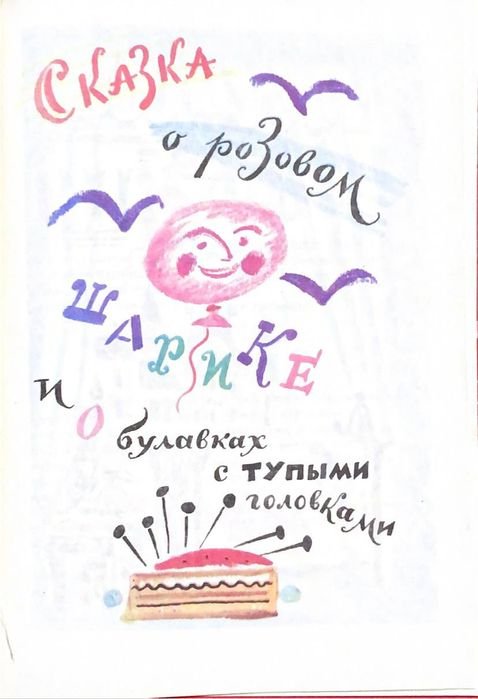 Сказка
о розовом
шарике
и о булавках
с тупыми
головками